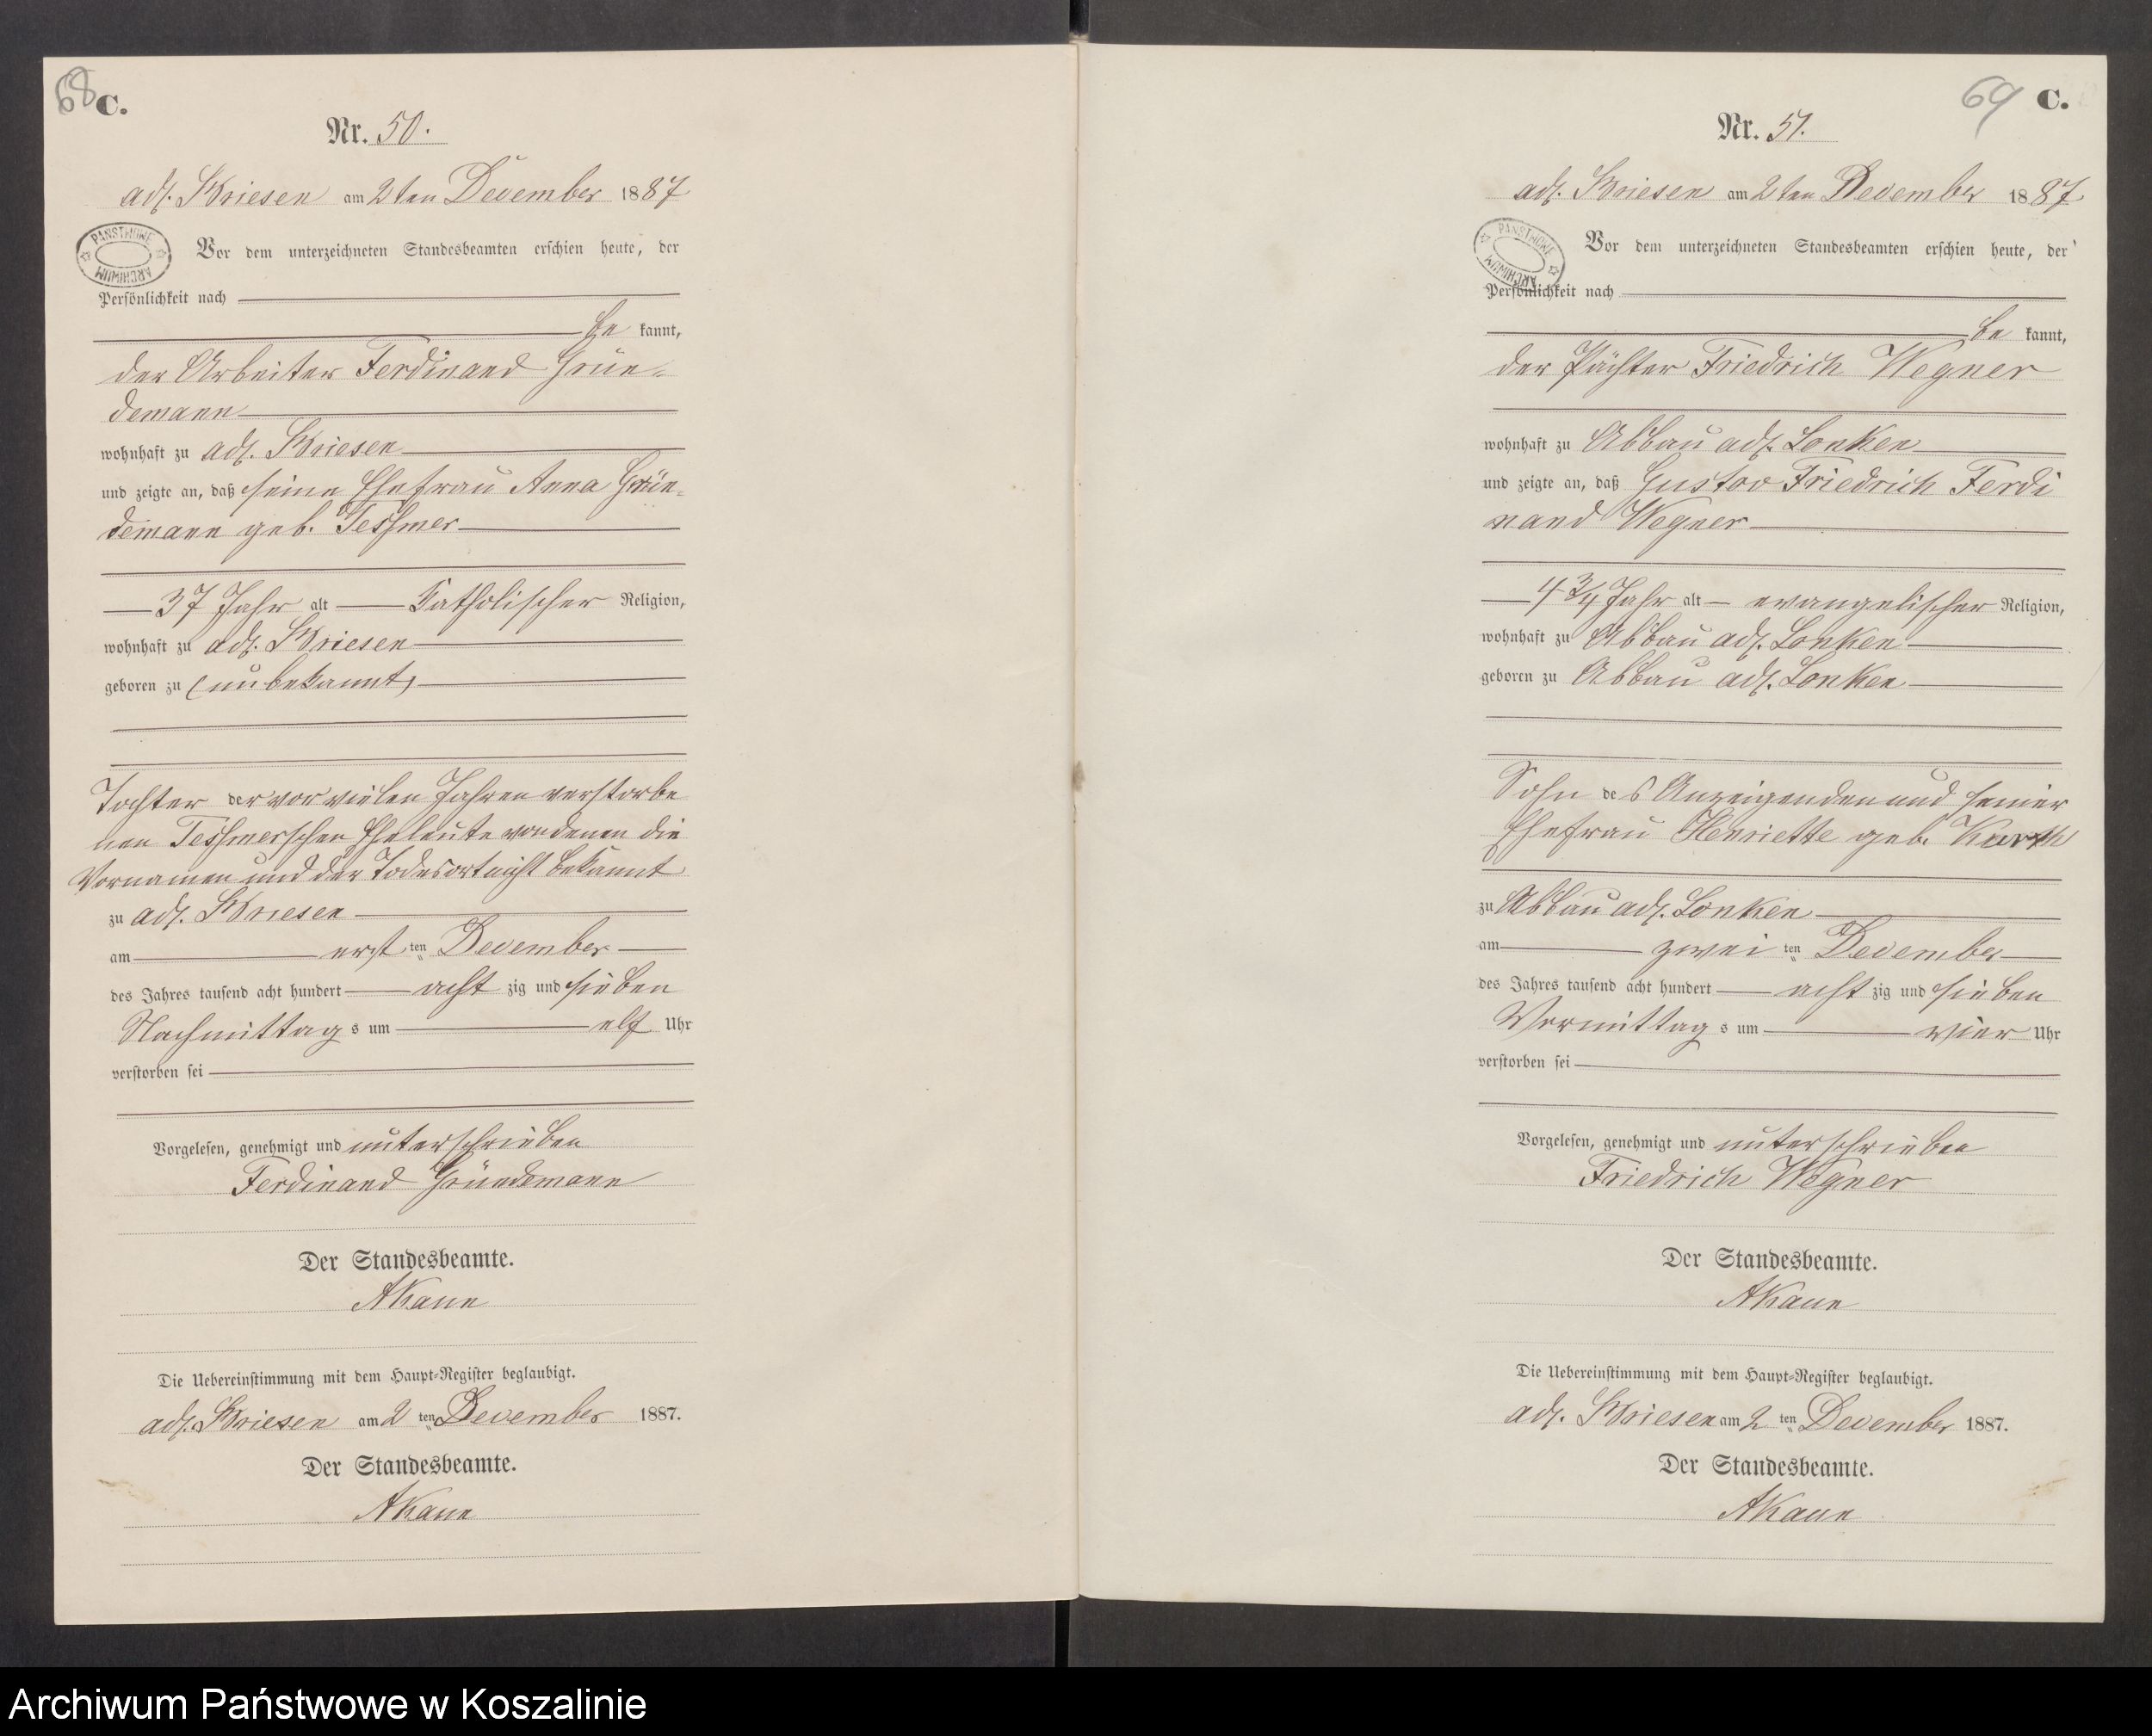 68 C.
Nr. 50.
adl. Briesen am 2ten December 1887
PAŃSTWOWE ARCHIWUM
Vor dem unterzeichneten Standesbeamten erschien heute, der
Persönlichkeit nach
be kannt,
der Arbeiter Ferdinand Grün-
demann
wohnhaft zu adl. Briesen
und zeigte an, daß seine Ehefrau Anna Grün-
demann geb. Teßmer
37 Jahr alt katholischer Religion,
wohnhaft zu adl. Briesen
geboren zu (unbekannt)
Tochter der vor vielen Jahren verstorbe
nen Teßmerschen Eheleute von denen die
Vornamen und der Todesort nicht bekannt
zu adl. Briesen
am erst ten December
des Jahres tausend acht hundert acht zig und sieben
Nachmittag s um elf Uhr
verstorben sei
Vorgelesen, genehmigt und unterschrieben
Ferdinand Gründemann
Der Standesbeamte.
Die Uebereinstimmung mit dem Haupt-Register beglaubigt.
adl. Briesen am 2 ten December 1887.
Der Standesbeamte.
69 C.
Nr. 51.
adl. Briesen am 2ten December 1887
PAŃSTWOWE ARCHIWUM
Vor dem unterzeichneten Standesbeamten erschien heute, der
Persönlichkeit nach
be kannt,
der Pächter Friedrich Wegner
wohnhaft zu Abbau adl. Lonken
und zeigte an, daß Gustav Friedrich Ferdi
nand Wegner
4 3/4 Jahr alt evangelischer Religion,
wohnhaft zu Abbau adl. Lonken
geboren zu Abbau adl. Lonken
Sohn des Anzeigenden und seiner
Ehefrau Henriette geb. Kurth
zu Abbau adl. Lonken
am zwei ten December
des Jahres tausend acht hundert acht zig und sieben
Vormittag s um vier Uhr
verstorben sei
Vorgelesen, genehmigt und unterschrieben
Friedrich Wegner
Der Standesbeamte.
Die Uebereinstimmung mit dem Haupt-Register beglaubigt.
adl. Briesen am 2 ten December 1887.
Der Standesbeamte.
Archiwum Państwowe w Koszalinie